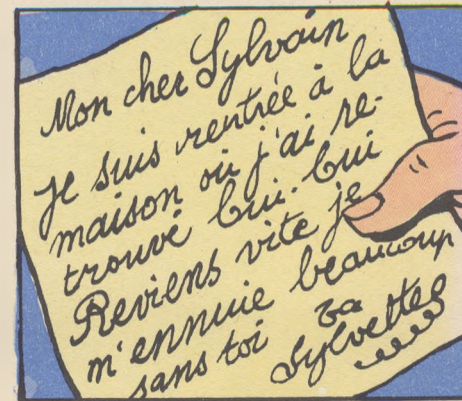 Mon cher Sylvain
je suis rentrée à la
maison où j'ai re-
trouvé Cui-Cui
Reviens vite je
m'ennuie beaucoup
sans toi ta
Sylvette